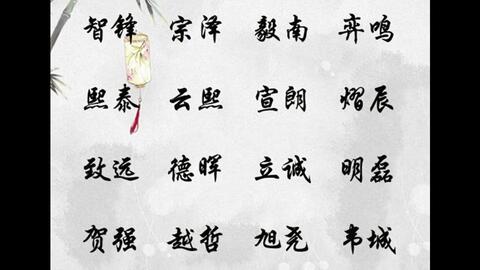 智锋 宗泽 毅南 弈鸣
熙泰 云熙 宣朗 熠辰
致远 德晖 立诚 明磊
贺强 越哲 旭尧 韦城